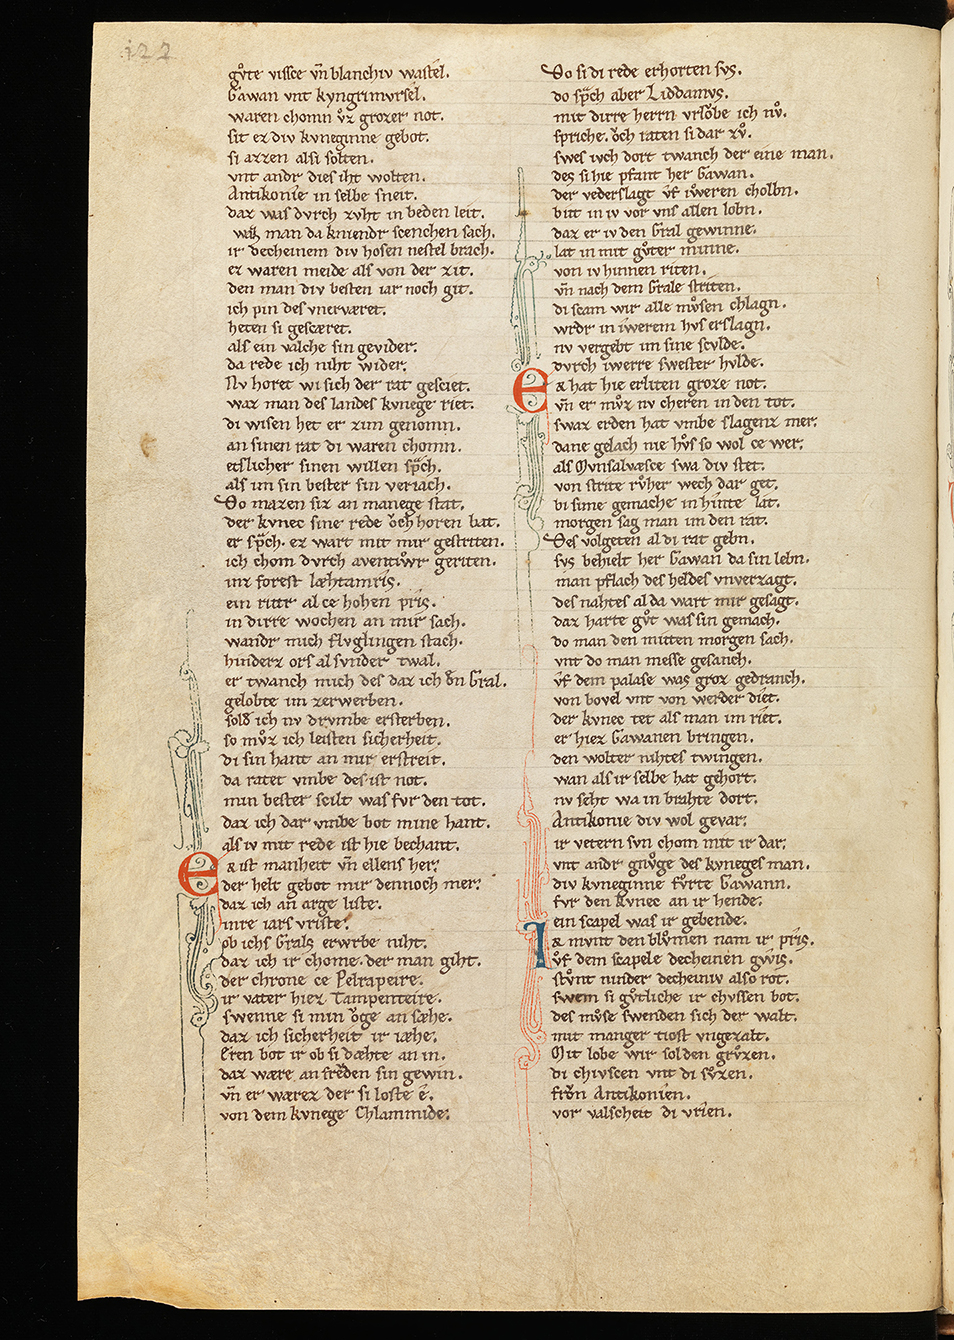 122
gůte vissce vn̄ blanchiv wastel.
Gawan vnt kyngrimvrsel.
waren chomn v̊z grozer not.
sit ez div kvneginne gebot.
si azzen als si solten.
vnt andr dies iht wolten.
Antikonie in selbe sneit.
daz was dvrch zvht in beden leit.
waz man da kniendr scenchen sach.
ir decheinem div hosen nestel brach.
ez waren meide als von der zit.
den man div besten iar noch git.
ich pin des vnerværet.
heten si gescæret.
als ein valche sin gevider.
da rede ich niht wider.
Nv horet wi sich der rat gesciet.
waz man des landes kvnege riet.
di wisen het er zim genomn.
an sinen rat di waren chomn.
etslicher sinen willen sp̄ch.
als im sin bester sin veriach.
Do mazen siz an manege stat.
der kvnec sine rede o̊ch horen bat.
er sp̄ch. ez wart mit mir gestriten.
ich chom dvrch aventiwr geriten.
inz forest læhtamris.
ein ritr al ce hohen pris.
in dirre wochen an mir sach.
wandr mich flvglingen stach.
hinderz ors al svnder twal.
er twanch mich des daz ich dn̄ Gral.
gelobte im zerwerben.
sold ich nv drvmbe ersterben.
so mv̊z ich leisten sicherheit.
di sin hant an mir erstreit.
da ratet vmbe des ist not.
min bester scilt was fvr den tot.
daz ich dar vmbe bot mine hant.
als iv mit rede ist hie bechant.
Er ist manheit vn̄ ellens her.
der helt gebot mir dennoch mer.
daz ich an arge liste.
inre iars vriste.
ob ichs Grals erwrbe niht.
daz ich ir chome. der man giht.
der chrone ce Pelrapeire.
ir vater hiez Tampenteire.
swenne si min o̊ge an sæhe.
daz ich sicherheit ir iæhe.
Eren bot ir ob si dæhte an in.
daz wære an frěden sin gewin.
vn̄ er wærez der si loste ê.
von dem kvnege Chlammide.
Do si di rede erhorten svs.
do sp̄ch aber Liddamvs.
mit dirre herrn vrlo̊be ich nv̊.
spriche. o̊ch raten si dar zv̊.
swes ivch dort twanch der eine man.
des si hie pfant her Gawan.
der vederslagt v̊f iweren cholbn.
bitt in iv vor vns allen lobn.
daz er iv den Gral gewinne.
lat in mit gv̊ter minne.
von iv hinnen riten.
vn̄ nach dem Grale striten.
di scam wir alle mv̊sen chlagn.
wrdr in iwerem hvs erslagn.
nv vergebt im sine scvlde.
dvrch iwerre swester hvlde.
Er hat hie erliten groze not.
vn̄ er mv̊z nv cheren in den tot.
swaz erden hat vmbe slagenz mer.
dane gelach nie hv̊s so wol ce wer.
als Mvnsalvæsce swa div stet.
von strite rv̊her wech dar get.
bi sime gemache in hinte lat.
morgen sag man im den rat.
Des volgeten al di rat gebn.
svs behielt her Gawan da sin lebn.
man pflach des heldes vnverzagt.
des nahtes al da wart mir gesagt.
daz harte gv̊t was sin gemach.
do man den mitten morgen sach.
vnt do man messe gesanch.
v̊f dem palase was groz gedranch.
von bovel vnt von werder diet.
der kvnec tet als man im riet.
er hiez Gawanen bringen.
den wolter nihtes twingen.
wan als ir selbe hat gehort.
nv seht wa in brahte dort.
Antikonie div wol gevar.
ir vetern svn chom mit ir dar.
vnt andr gnv̊ge des kvneges man.
div kvneginne fv̊rte Gawann.
fvr den kvnec an ir hende.
ein scapel was ir gebende.
Ir mvnt den blv̊men nam ir pris.
v̊f dem scapele decheinen gwis.
stv̊nt ninder decheiniv also rot.
swem si gv̊tliche ir chvssen bot.
des mv̊se swenden sich der walt.
mit manger tiost vngezalt.
Mit lobe wir solden grv̊zen.
di chivscen vnt di sv̊zen.
frŏn Antikonien.
vor valscheit di vrien.